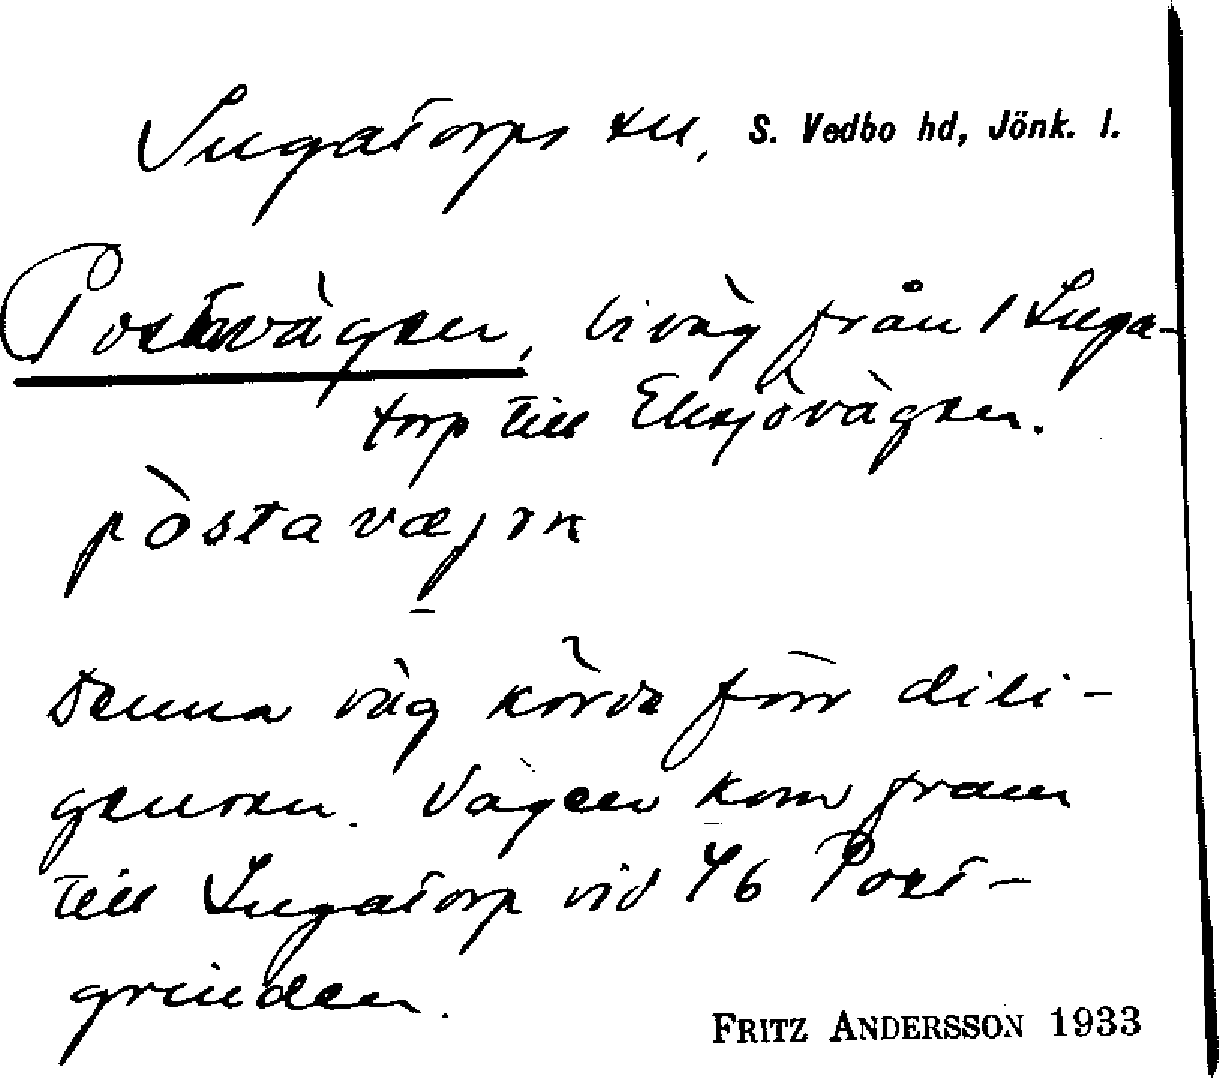 Lugatorps ..., S. Vedbo hd, Jönk. l.
Postavägen, biväg från 1 Luga-
torp till Eksjövägen.
pòstavæjən
Denna väg körde förr dili-
gensen. Vägen kom fram
till Lugatorp vid 46 Post-
grinden.
FRITZ ANDERSSON 1933